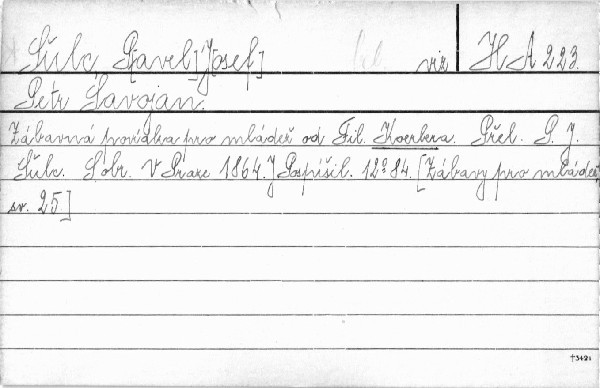 Šulc, Pavel [Josef] viz H A 223.
Petr Savojan.
Zábavná povídka pro mládež od Fil. Koerbera. Přel. P. J.
Šulc. S obr. V Praze 1864. J Pospíšil. 12° 84. [Zábavy pro mládež,
sv. 25]
+3481